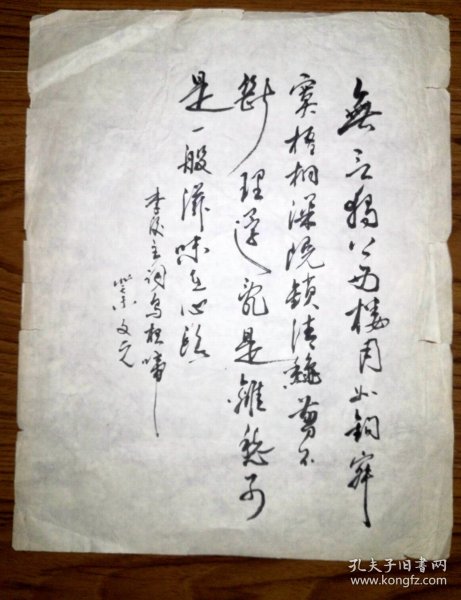 無言獨上西樓月如鉤寂
寞梧桐深院鎖清秋剪不
斷理還亂是離愁別
是一般滋味在心頭
李後主詞烏夜啼
文元
孔夫子旧书网
www.kongfz.com